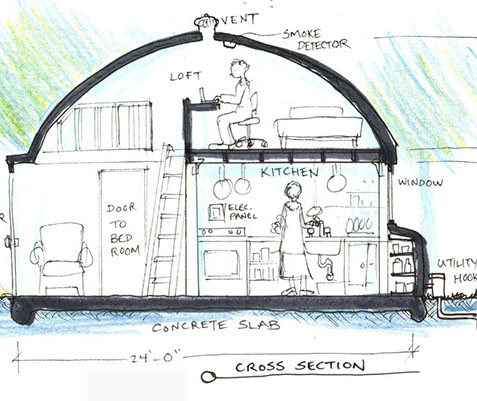 VENT
SMOKE
DETECTOR
LOFT
KITCHEN
WINDOW
ELEC.
PANEL
DOOR
TO
BED
ROOM
R
UTILITY
HOOK
CONCRETE SLAB
24'-0"
CROSS SECTION